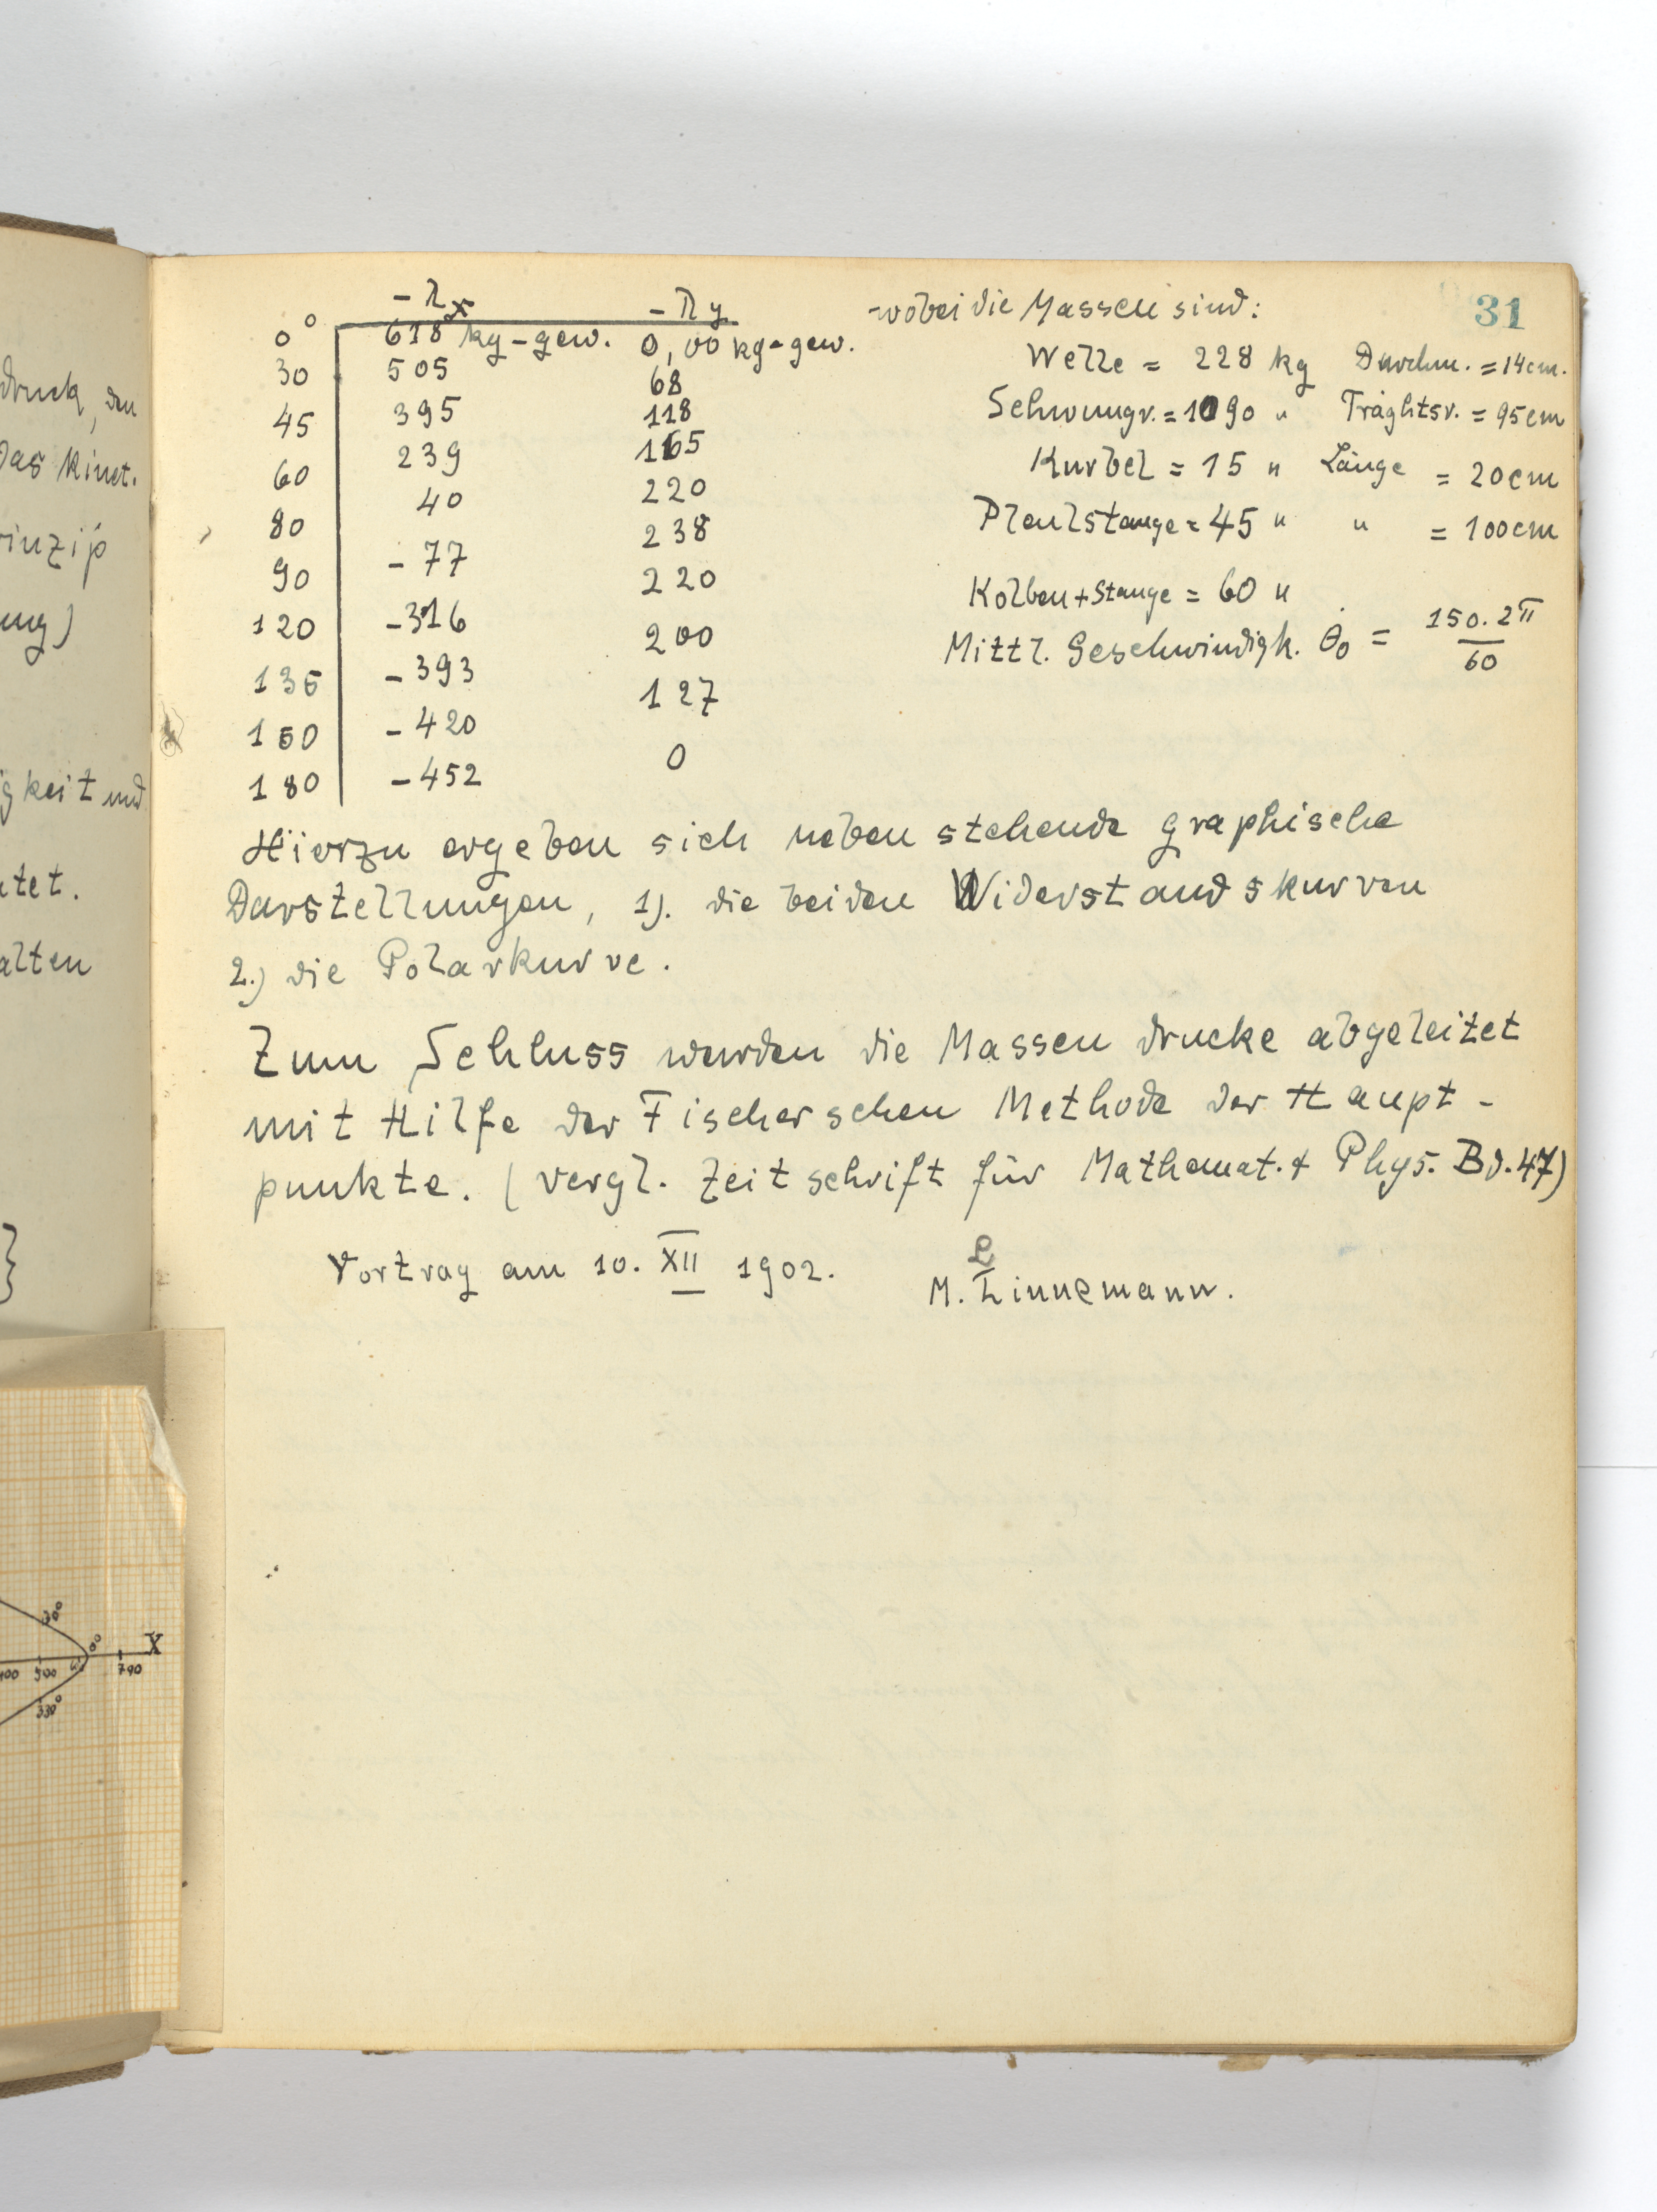 31
- Λx - Λy
0° 618 kg-gew. 0,00 kg-gew.
30 505 68
45 395 118
60 239 165
80 40 220
90 - 77 238
120 - 316 220
135 - 393 200
150 - 420 127
180 - 452 0
wobei die Massen sind:
Welle = 228 kg Durchm. = 14cm.
Schwungr. = 1090 " Träghtsr. = 95cm
Kurbel = 15 " Länge = 20cm
Pleulstange = 45 " " = 100cm
Kolben + Stange = 60 "
Mittl. Geschwindigk. θ̇₀ = 150. 2π / 60
Hierzu ergeben sich nebenstehende graphische
Darstellungen, 1). die beiden Widerstandskurven
2.) die Polarkurve.
Zum Schluss wurden die Massendrucke abgeleitet
mit Hilfe der Fischerschen Methode der Haupt-
punkte. (vergl. Zeitschrift für Mathemat. + Phys. Bd. 47)
Vortrag am 10. XII 1902.
L
M. Linnemann.
druck, den
Das kinet.
inzip
ung)
igkeit und
tet.
alten
30°
0°
X
500
700
330°